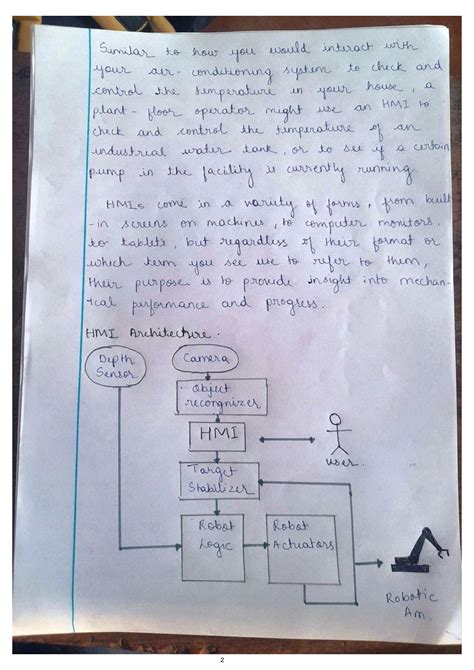 Similar to how you would interact with
your air-conditioning system to check and
control the temperature in your house, a
plant-floor operator might use an HMI to
check and control the temperature of an
industrial water tank, or to see if a certain
pump in the facility is currently running
HMIs come in a variety of forms, from built
-in screens on machines, to computer monitors,
to tablets, but regardless of their format or
which term you see use to refer to them,
their purpose is to provide insight into mechan-
ical performance and progress.
HMI Architecture.
Depth
Sensor
Camera
Object
recongnizer
HMI
user.
Target
Stabilizer
Robot
Logic
Robot
Actuators
Robotic
Am.
2